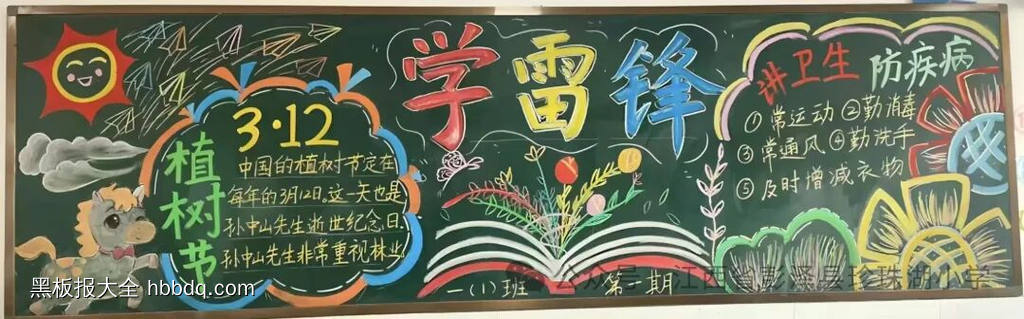 植树节
3·12
中国的植树节定在
每年的3月12日。这一天也是
孙中山先生逝世纪念日.
孙中山先生非常重视林业
学雷锋
一(1)班 第一期
讲卫生 防疾病
①常运动 ②勤消毒
③常通风 ④勤洗手
⑤及时增减衣物
黑板报大全 hbbdq.com
公众号 · 江西省彭泽县珍珠湖小学